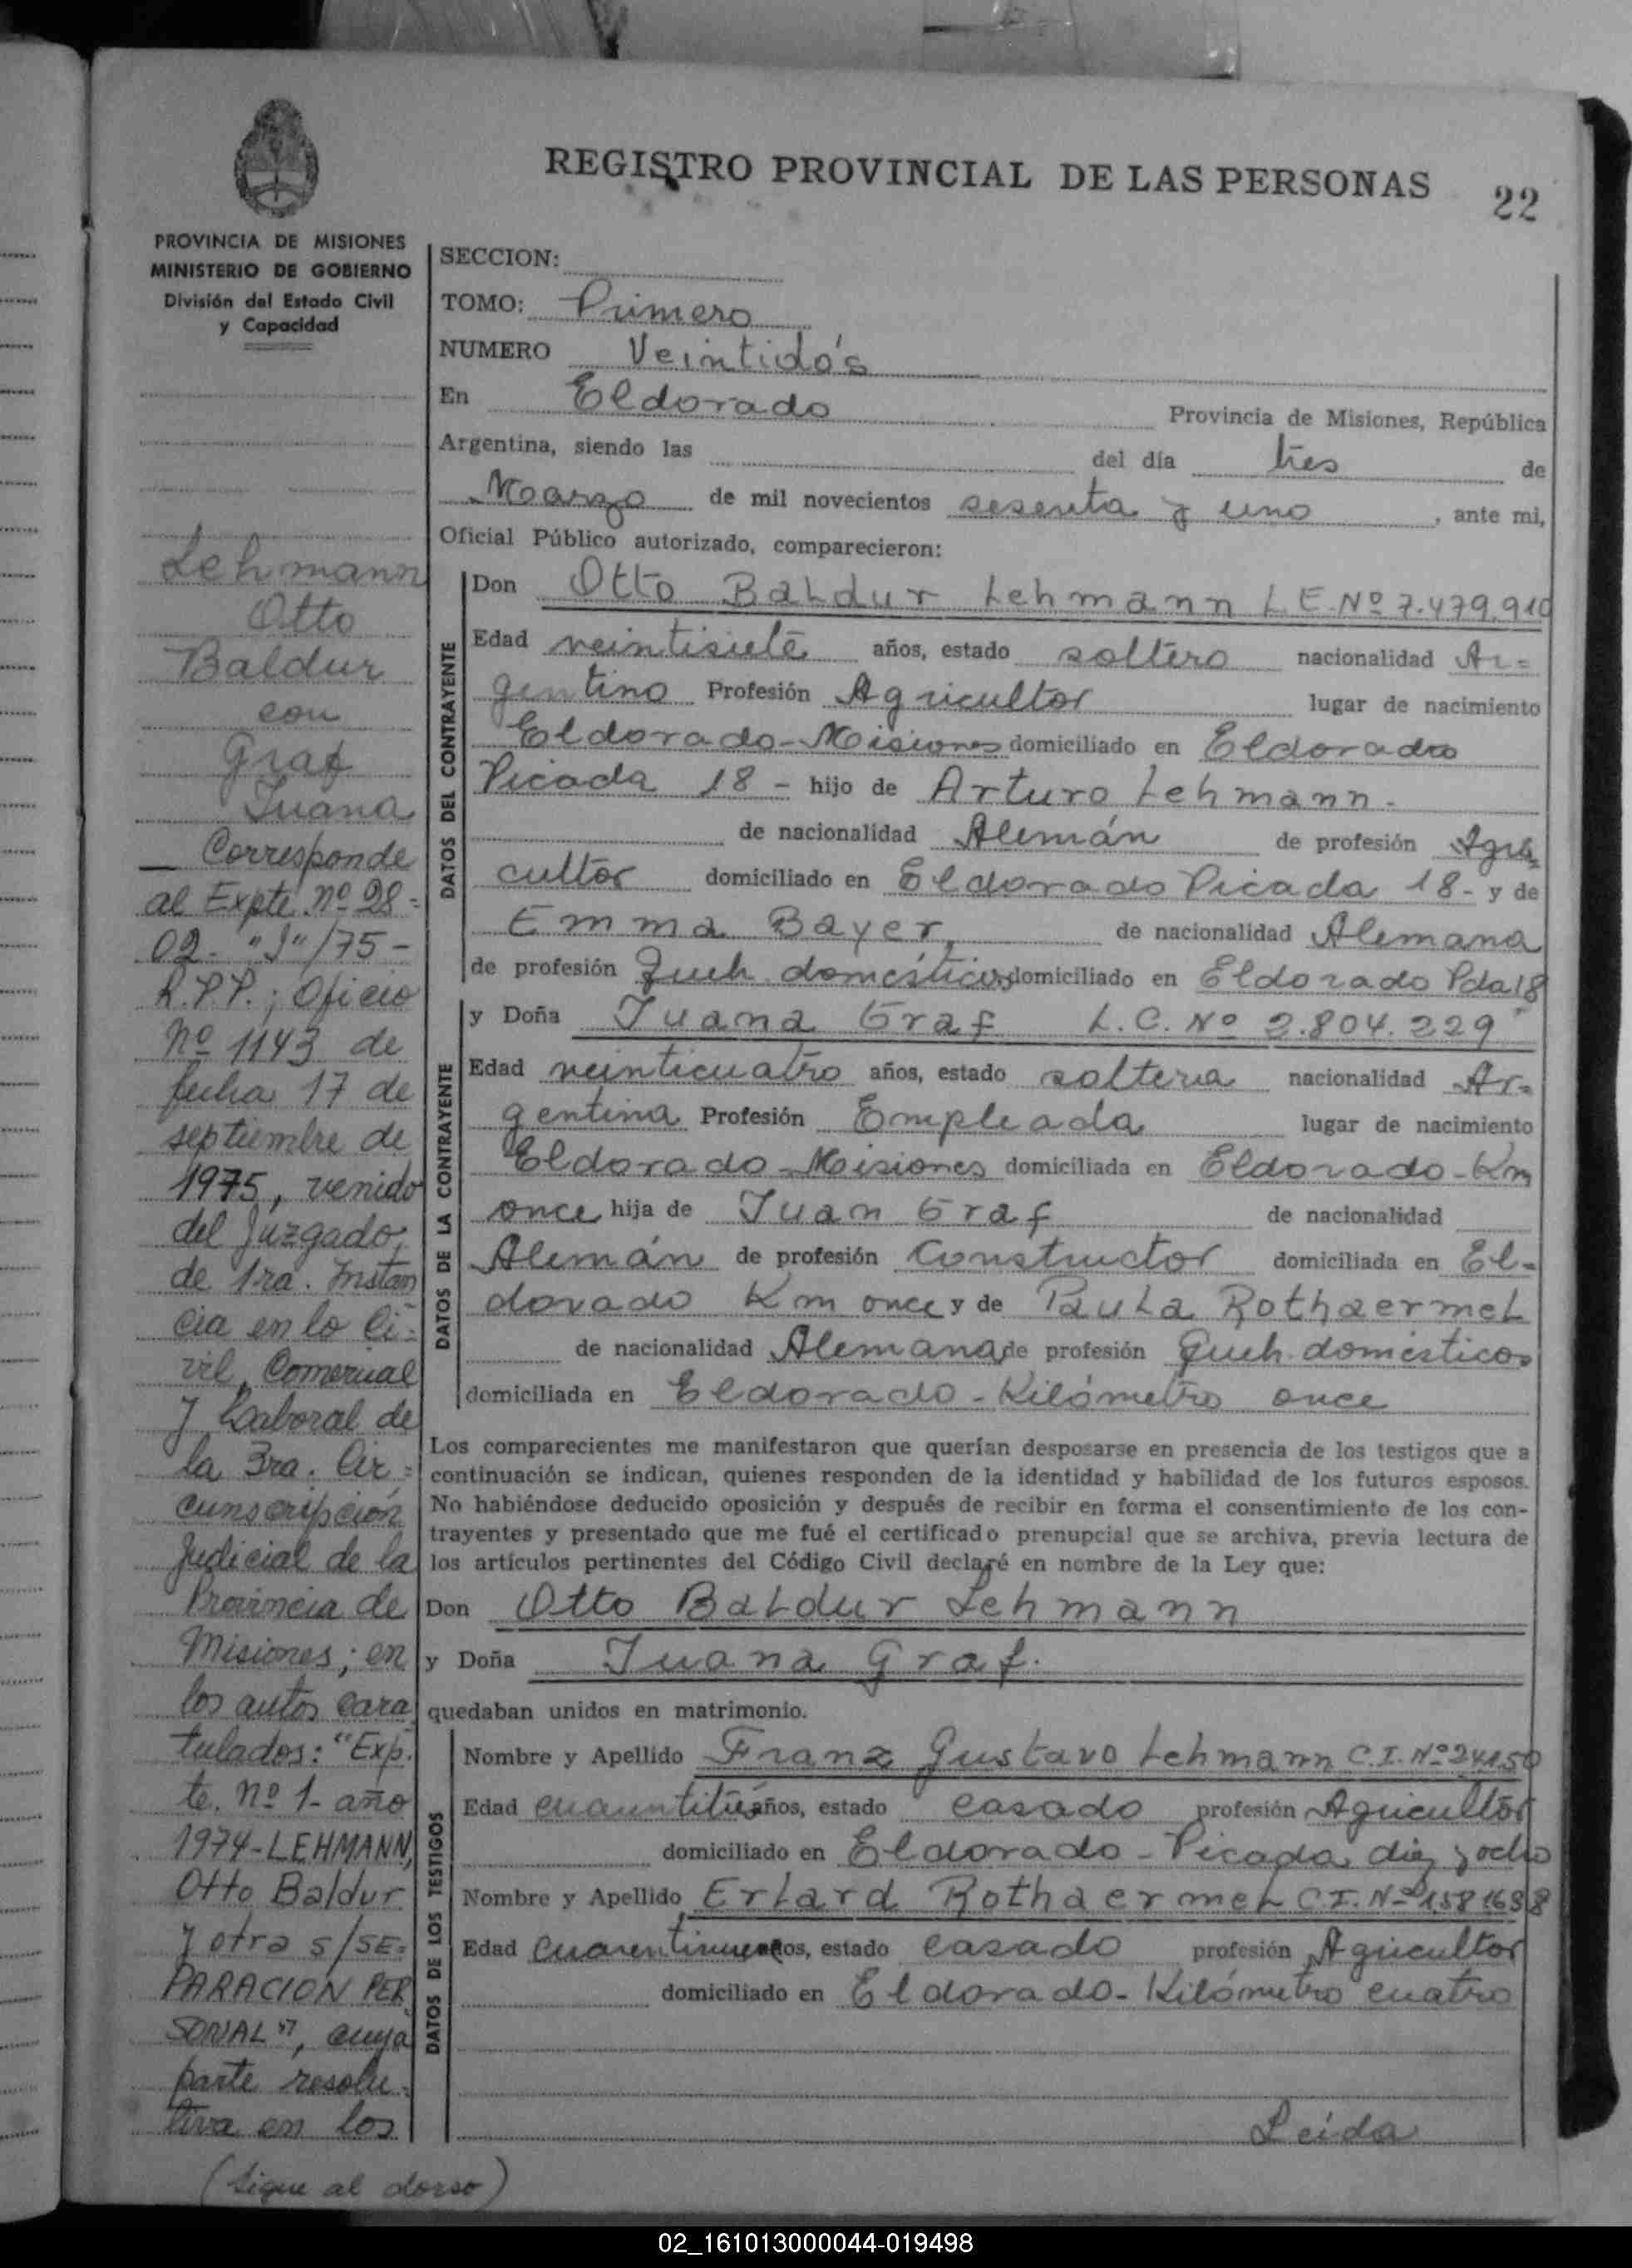 REGISTRO PROVINCIAL DE LAS PERSONAS 22
PROVINCIA DE MISIONES
MINISTERIO DE GOBIERNO
División del Estado Civil
y Capacidad
Lehmann
Otto
Baldur
con
Graf
Juana
Corresponde
al Expte. nº 28=
02- "J"/75-
R.P.P.; Oficio
Nº 1143 de
fecha 17 de
septiembre de
1975, venido
del Juzgado
de 1ra. Instan
cia en lo Ci=
vil, Comercial
y Laboral de
la 3ra. Cir=
cunscripción
Judicial de la
Provincia de
Misiones; en
los autos cara
tulados: "Exp.
te. nº 1- año
1974-LEHMANN,
Otto Baldur
y otra s/SE=
PARACION PER
SONAL", cuya
parte resolu=
tiva en los
(Sigue al dorso)
SECCION:
TOMO: Primero
NUMERO Veintidós
En Eldorado Provincia de Misiones, República
Argentina, siendo las del día tres de
Marzo de mil novecientos sesenta y uno, ante mi,
Oficial Público autorizado, comparecieron:
DATOS DEL CONTRAYENTE
Don Otto Baldur Lehmann L.E.Nº 7.479.910
Edad veintisiete años, estado soltero nacionalidad Ar=
gentino Profesión Agricultor lugar de nacimiento
Eldorado-Misiones domiciliado en Eldorado
Picada 18 - hijo de Arturo Lehmann-
de nacionalidad Alemán de profesión Agri=
cultor domiciliado en Eldorado Picada 18- y de
Emma Bayer, de nacionalidad Alemana
de profesión Queh. domésticos domiciliado en Eldorado Pda 18
DATOS DE LA CONTRAYENTE
y Doña Juana Graf L.C. Nº 2.804.229
Edad veinticuatro años, estado soltera nacionalidad Ar=
gentina Profesión Empleada lugar de nacimiento
Eldorado-Misiones domiciliada en Eldorado-Km
once hija de Juan Graf de nacionalidad
Alemán de profesión Constructor domiciliada en El=
dorado Km once y de Paula Rothaermel
de nacionalidad Alemana de profesión Queh. domésticos
domiciliada en Eldorado-Kilómetro once
Los comparecientes me manifestaron que querían desposarse en presencia de los testigos que a
continuación se indican, quienes responden de la identidad y habilidad de los futuros esposos.
No habiéndose deducido oposición y después de recibir en forma el consentimiento de los con-
trayentes y presentado que me fué el certificado prenupcial que se archiva, previa lectura de
los artículos pertinentes del Código Civil declaré en nombre de la Ley que:
Don Otto Baldur Lehmann
y Doña Juana Graf.
quedaban unidos en matrimonio.
DATOS DE LOS TESTIGOS
Nombre y Apellido Franz Gustavo Lehmann C.I. Nº 24150
Edad años, estado casado profesión Agricultor
domiciliado en Eldorado-Picada diez y ocho
Nombre y Apellido Erhard Rothaermel C.I. Nº
Edad años, estado casado profesión Agricultor
domiciliado en Eldorado-Kilómetro cuatro
Leída
02_161013000044-019498